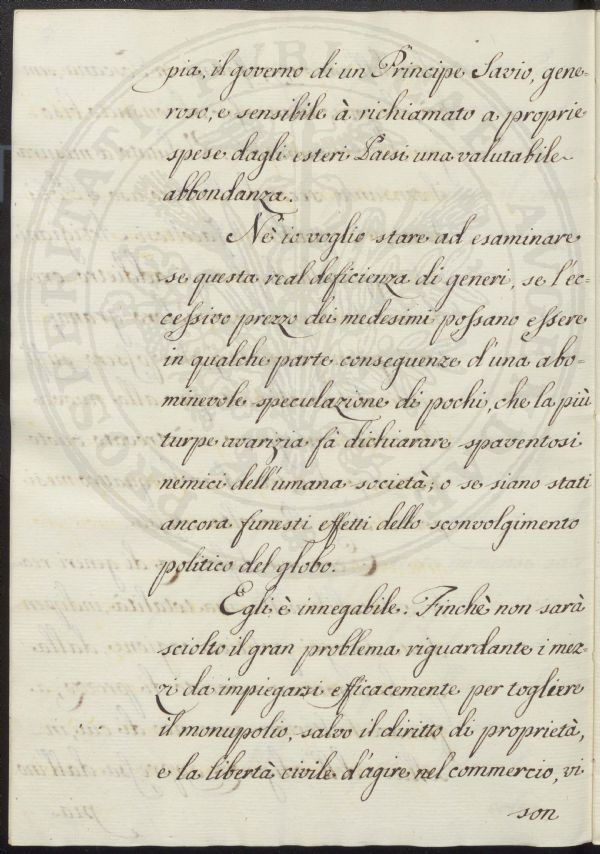 pia, il governo di un Principe Savio, gene-
roso, e sensibile à richiamato a proprie
spese dagli esteri Paesi una valutabile
abbondanza.
Nè io voglio stare ad esaminare
se questa real deficienza di generi, se l'ec-
cessivo prezzo dei medesimi possano essere
in qualche parte conseguenze d'una abo-
minevole speculazione di pochi, che la più
turpe avarizia fà dichiarare spaventosi
nemici dell'umana società; o se siano stati
ancora funesti effetti dello sconvolgimento
politico del globo.
Egli è innegabile: Finchè non sarà
sciolto il gran problema riguardante i mez-
zi da impiegarsi efficacemente per togliere
il monupolio, salvo il diritto di proprietà,
e la libertà civile d'agire nel commercio, vi
son